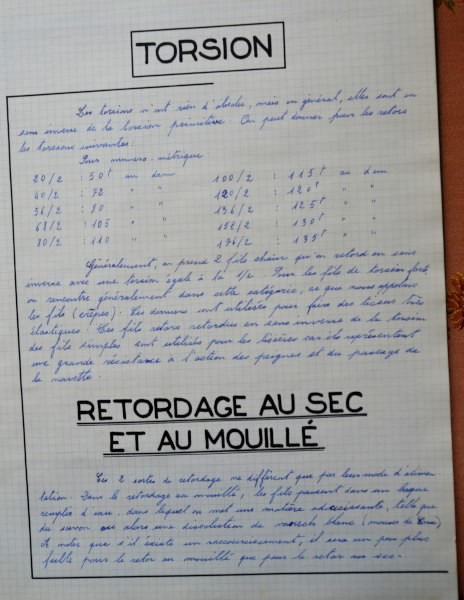 TORSION
Les torsions n'ont rien d'absolu, mais en général, elles sont en
sens inverse de la torsion primitive. On peut donner pour les retors
les torsions suivantes:
Pour numéro métrique
20/2 : 50t au dam 100/2 : 115t au dam
40/2 : 72 " " 120/2 : 120t " "
56/2 : 80 " " 136/2 : 125t " "
68/2 : 105 " " 152/2 : 130t " "
80/2 : 110 " " 176/2 : 135t " "
Généralement, on prend 2 fils chaîne qu'on retord en sens
inverse avec une torsion égale à la 1/2. Pour les fils de torsion forte,
on rencontre généralement dans cette catégorie, ce que nous appelons
les fils (crêpes). Ces derniers sont utilisés pour faire des tissus très
élastiques. Les fils retors retordus en sens inverse de la torsion
des fils simples sont utilisés pour les lisières car ils représentent
une grande résistance à l'action des peignes et du passage de
la navette.
RETORDAGE AU SEC
ET AU MOUILLÉ
Ces 2 sortes de retordage ne diffèrent que par leur mode d'alimen
tation. Dans le retordage au mouillé, les fils passent dans un bague
remplie d'eau, dans lequel on met une matière adoucissante, telle que
du savon ou alors une dissolution de varech blanc (mousse de
A noter que s'il existe un raccourcissement, il sera un peu plus
faible pour le retor au mouillé que pour le retor au sec.